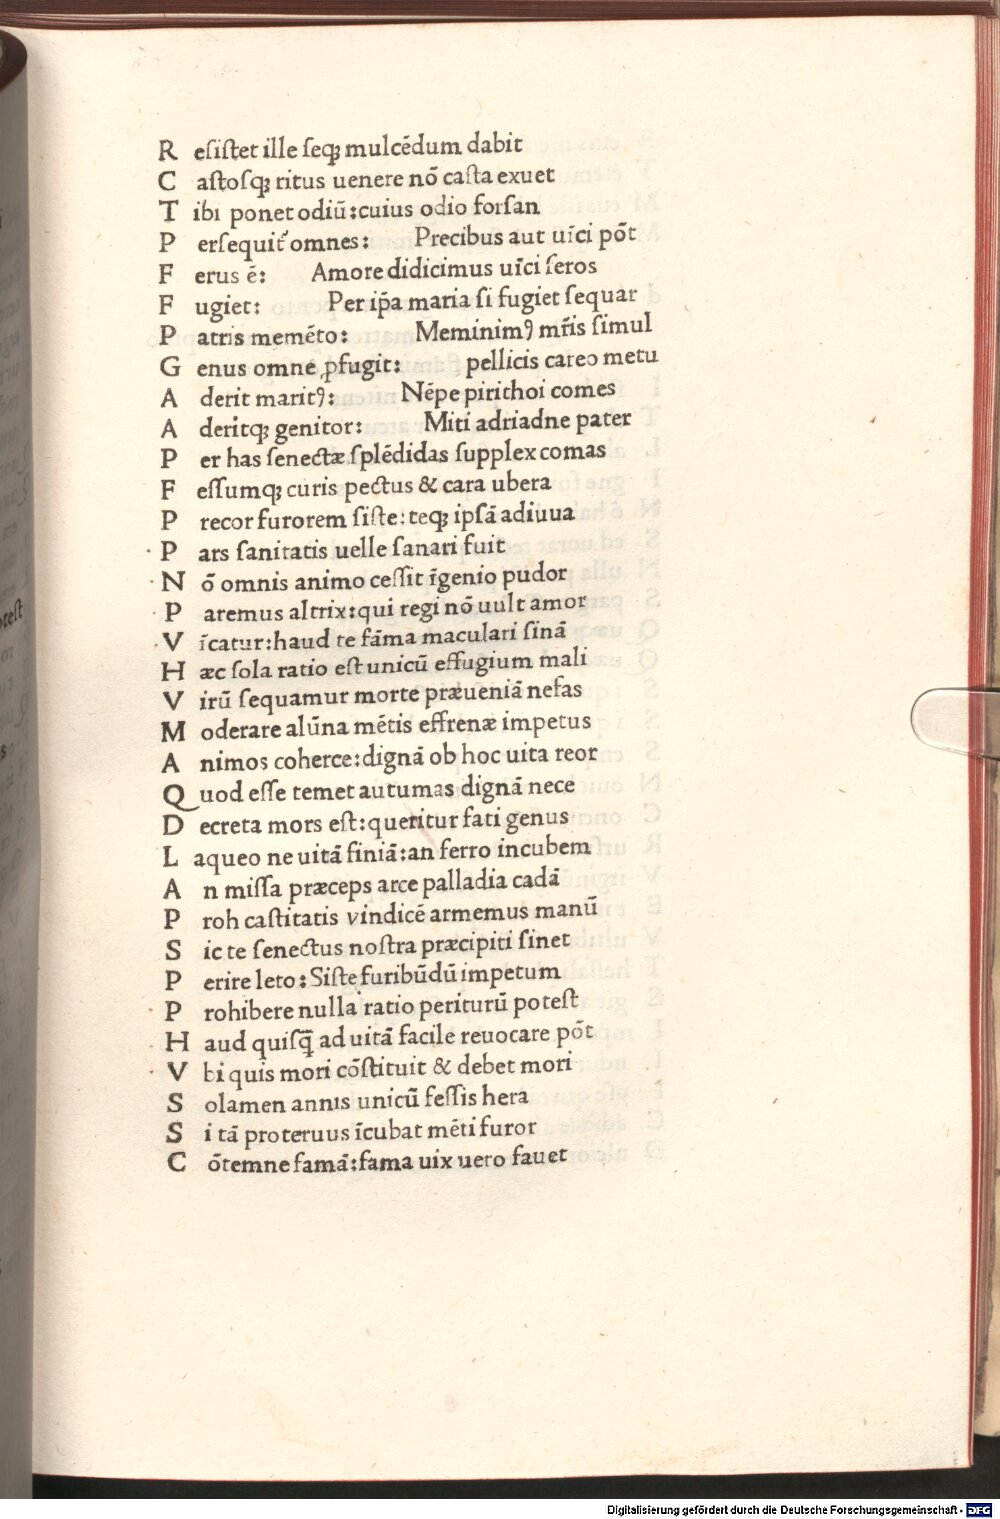 R eſiſtet ille ſeqꝫ mulcēdum dabit
C aſtoſqꝫ ritus uenere nō caſta exuet
T ibi ponet odiū:cuius odio forſan
P erſequit᷑ omnes: Precibus aut uīci pōt
F erus ē: Amore didicimus uīci feros
F ugiet: Per ip̄a maria ſi fugiet ſequar
P atris memēto: Meminimꝰ mr̄is ſimul
G enus omne ꝓfugit: pellicis careo metu
A derit maritꝰ: Nēpe pirithoi comes
A deritqꝫ genitor: Miti adriadne pater
P er has ſenectæ ſplēdidas ſupplex comas
F eſſumqꝫ curis pectus & cara ubera
P recor furorem ſiſte:teqꝫ ipſā adiuua
P ars ſanitatis uelle ſanari fuit
N ō omnis animo ceſſit īgenio pudor
P aremus altrix:qui regi nō uult amor
V īcatur:haud te fāma maculari ſinā
H æc ſola ratio eſt unicū effugium mali
V irū ſequamur morte præueniā nefas
M oderare alūna mētis effrenæ impetus
A nimos coherce:dignā ob hoc uita reor
Q uod eſſe temet autumas dignā nece
D ecreta mors eſt:queritur fati genus
L aqueo ne uitā finiā:an ferro incubem
A n miſſa præceps arce palladia cadā
P roh caſtitatis vindicē armemus manū
S ic te ſenectus noſtra præcipiti ſinet
P erire leto:Siſte furibūdū impetum
P rohibere nulla ratio periturū poteſt
H aud quiſq̄ ad uitā facile reuocare pōt
V bi quis mori cōſtituit & debet mori
S olamen annıs unicū feſſis hera
S i tā proteruus īcubat mēti furor
C ōtemne famā:fama uix uero fauet
Digitalisierung gefördert durch die Deutsche Forschungsgemeinschaft - DFG